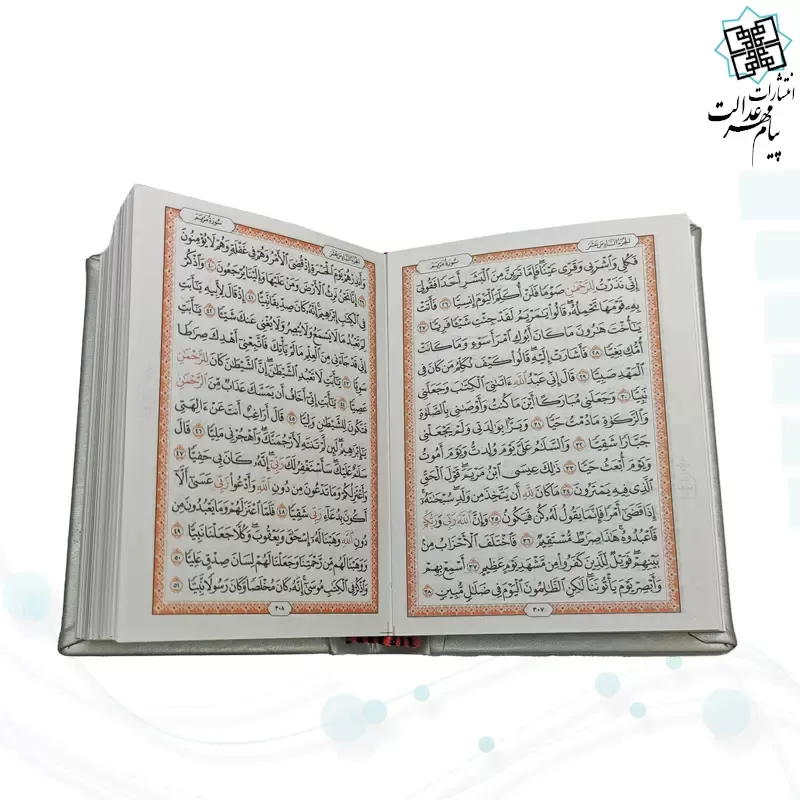 انتشارات
پیام مهر عدالت
الجزء السادس عشر
سورة مريم
فَكُلِى وَٱشْرَبِى وَقَرِّى عَيْنًا ۖ فَإِمَّا تَرَيِنَّ مِنَ ٱلْبَشَرِ أَحَدًا فَقُولِىٓ
إِنِّى نَذَرْتُ لِلرَّحْمَـٰنِ صَوْمًا فَلَنْ أُكَلِّمَ ٱلْيَوْمَ إِنسِيًّا ٢٦ فَأَتَتْ
بِهِۦ قَوْمَهَا تَحْمِلُهُۥ ۖ قَالُوا۟ يَـٰمَرْيَمُ لَقَدْ جِئْتِ شَيْـًٔا فَرِيًّا ٢٧
يَـٰٓأُخْتَ هَـٰرُونَ مَا كَانَ أَبُوكِ ٱمْرَأَ سَوْءٍ وَمَا كَانَتْ
أُمُّكِ بَغِيًّا ٢٨ فَأَشَارَتْ إِلَيْهِ ۖ قَالُوا۟ كَيْفَ نُكَلِّمُ مَن كَانَ فِى
ٱلْمَهْدِ صَبِيًّا ٢٩ قَالَ إِنِّى عَبْدُ ٱللَّهِ ءَاتَىٰنِىَ ٱلْكِتَـٰبَ وَجَعَلَنِى
نَبِيًّا ٣٠ وَجَعَلَنِى مُبَارَكًا أَيْنَ مَا كُنتُ وَأَوْصَـٰنِى بِٱلصَّلَوٰةِ
وَٱلزَّكَوٰةِ مَا دُمْتُ حَيًّا ٣١ وَبَرًّۢا بِوَٰلِدَتِى وَلَمْ يَجْعَلْنِى
جَبَّارًا شَقِيًّا ٣٢ وَٱلسَّلَـٰمُ عَلَىَّ يَوْمَ وُلِدتُّ وَيَوْمَ أَمُوتُ
وَيَوْمَ أُبْعَثُ حَيًّا ٣٣ ذَٰلِكَ عِيسَى ٱبْنُ مَرْيَمَ ۚ قَوْلَ ٱلْحَقِّ
ٱلَّذِى فِيهِ يَمْتَرُونَ ٣٤ مَا كَانَ لِلَّهِ أَن يَتَّخِذَ مِن وَلَدٍ ۖ سُبْحَـٰنَهُۥٓ ۚ
إِذَا قَضَىٰٓ أَمْرًا فَإِنَّمَا يَقُولُ لَهُۥ كُن فَيَكُونُ ٣٥ وَإِنَّ ٱللَّهَ رَبِّى وَرَبُّكُمْ
فَٱعْبُدُوهُ ۚ هَـٰذَا صِرَٰطٌ مُّسْتَقِيمٌ ٣٦ فَٱخْتَلَفَ ٱلْأَحْزَابُ مِنۢ
بَيْنِهِمْ ۖ فَوَيْلٌ لِّلَّذِينَ كَفَرُوا۟ مِن مَّشْهَدِ يَوْمٍ عَظِيمٍ ٣٧ أَسْمِعْ بِهِمْ
وَأَبْصِرْ يَوْمَ يَأْتُونَنَا ۖ لَـٰكِنِ ٱلظَّـٰلِمُونَ ٱلْيَوْمَ فِى ضَلَـٰلٍ مُّبِينٍ ٣٨
٣٠٧
الجزء السادس عشر
سورة مريم
وَأَنذِرْهُمْ يَوْمَ ٱلْحَسْرَةِ إِذْ قُضِىَ ٱلْأَمْرُ وَهُمْ فِى غَفْلَةٍ وَهُمْ لَا يُؤْمِنُونَ
٣٩ إِنَّا نَحْنُ نَرِثُ ٱلْأَرْضَ وَمَنْ عَلَيْهَا وَإِلَيْنَا يُرْجَعُونَ ٤٠ وَٱذْكُرْ
فِى ٱلْكِتَـٰبِ إِبْرَٰهِيمَ ۚ إِنَّهُۥ كَانَ صِدِّيقًا نَّبِيًّا ٤١ إِذْ قَالَ لِأَبِيهِ يَـٰٓأَبَتِ
لِمَ تَعْبُدُ مَا لَا يَسْمَعُ وَلَا يُبْصِرُ وَلَا يُغْنِى عَنكَ شَيْـًٔا ٤٢ يَـٰٓأَبَتِ
إِنِّى قَدْ جَآءَنِى مِنَ ٱلْعِلْمِ مَا لَمْ يَأْتِكَ فَٱتَّبِعْنِىٓ أَهْدِكَ صِرَٰطًا
سَوِيًّا ٤٣ يَـٰٓأَبَتِ لَا تَعْبُدِ ٱلشَّيْطَـٰنَ ۖ إِنَّ ٱلشَّيْطَـٰنَ كَانَ لِلرَّحْمَـٰنِ
عَصِيًّا ٤٤ يَـٰٓأَبَتِ إِنِّىٓ أَخَافُ أَن يَمَسَّكَ عَذَابٌ مِّنَ ٱلرَّحْمَـٰنِ
فَتَكُونَ لِلشَّيْطَـٰنِ وَلِيًّا ٤٥ قَالَ أَرَاغِبٌ أَنتَ عَنْ ءَالِهَتِى
يَـٰٓإِبْرَٰهِيمُ ۖ لَئِن لَّمْ تَنتَهِ لَأَرْجُمَنَّكَ ۖ وَٱهْجُرْنِى مَلِيًّا ٤٦ قَالَ
سَلَـٰمٌ عَلَيْكَ ۖ سَأَسْتَغْفِرُ لَكَ رَبِّىٓ ۖ إِنَّهُۥ كَانَ بِى حَفِيًّا ٤٧
وَأَعْتَزِلُكُمْ وَمَا تَدْعُونَ مِن دُونِ ٱللَّهِ وَأَدْعُوا۟ رَبِّى عَسَىٰٓ أَلَّآ
أَكُونَ بِدُعَآءِ رَبِّى شَقِيًّا ٤٨ فَلَمَّا ٱعْتَزَلَهُمْ وَمَا يَعْبُدُونَ مِن
دُونِ ٱللَّهِ وَهَبْنَا لَهُۥٓ إِسْحَـٰقَ وَيَعْقُوبَ ۖ وَكُلًّا جَعَلْنَا نَبِيًّا ٤٩
وَوَهَبْنَا لَهُم مِّن رَّحْمَتِنَا وَجَعَلْنَا لَهُمْ لِسَانَ صِدْقٍ عَلِيًّا ٥٠
وَٱذْكُرْ فِى ٱلْكِتَـٰبِ مُوسَىٰٓ ۚ إِنَّهُۥ كَانَ مُخْلَصًا وَكَانَ رَسُولًا نَّبِيًّا ٥١
٣٠٨